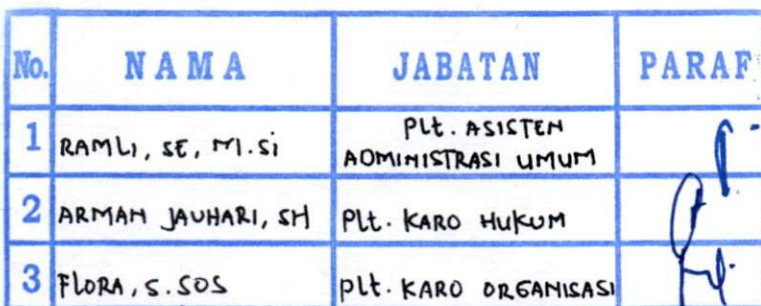 No. NAMA JABATAN PARAF
1 RAMLI, SE, M.Si Plt. ASISTEN
ADMINISTRASI UMUM
2 ARMAN JAUHARI, SH Plt. KARO HUKUM
3 FLORA, S.SOS Plt. KARO ORGANISASI